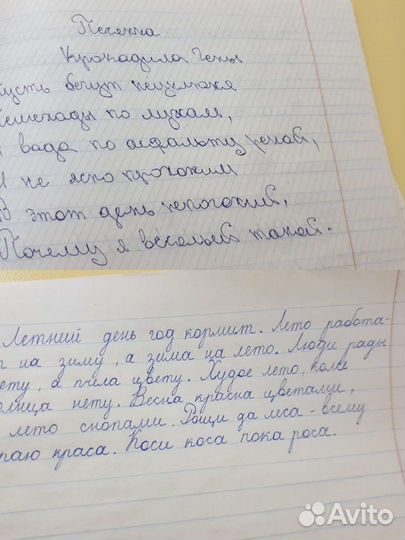 Песенка
Крокадила Гены
усть бегут неуклюжа
ешехады по лужам,
вада по асфальту рекой,
И не ясно прохожим
В этот день непогожий,
Почему я веселый такой.
Летний день год кормит. Лето работа-
т на зиму, а зима на лето. Люди рады
ету, а пчела цвету. Худое лето, коли
олнца нету. Весна красна цветами,
лето снопами. Рощи да леса - всему
раю краса. Коси коса пока роса.
Avito